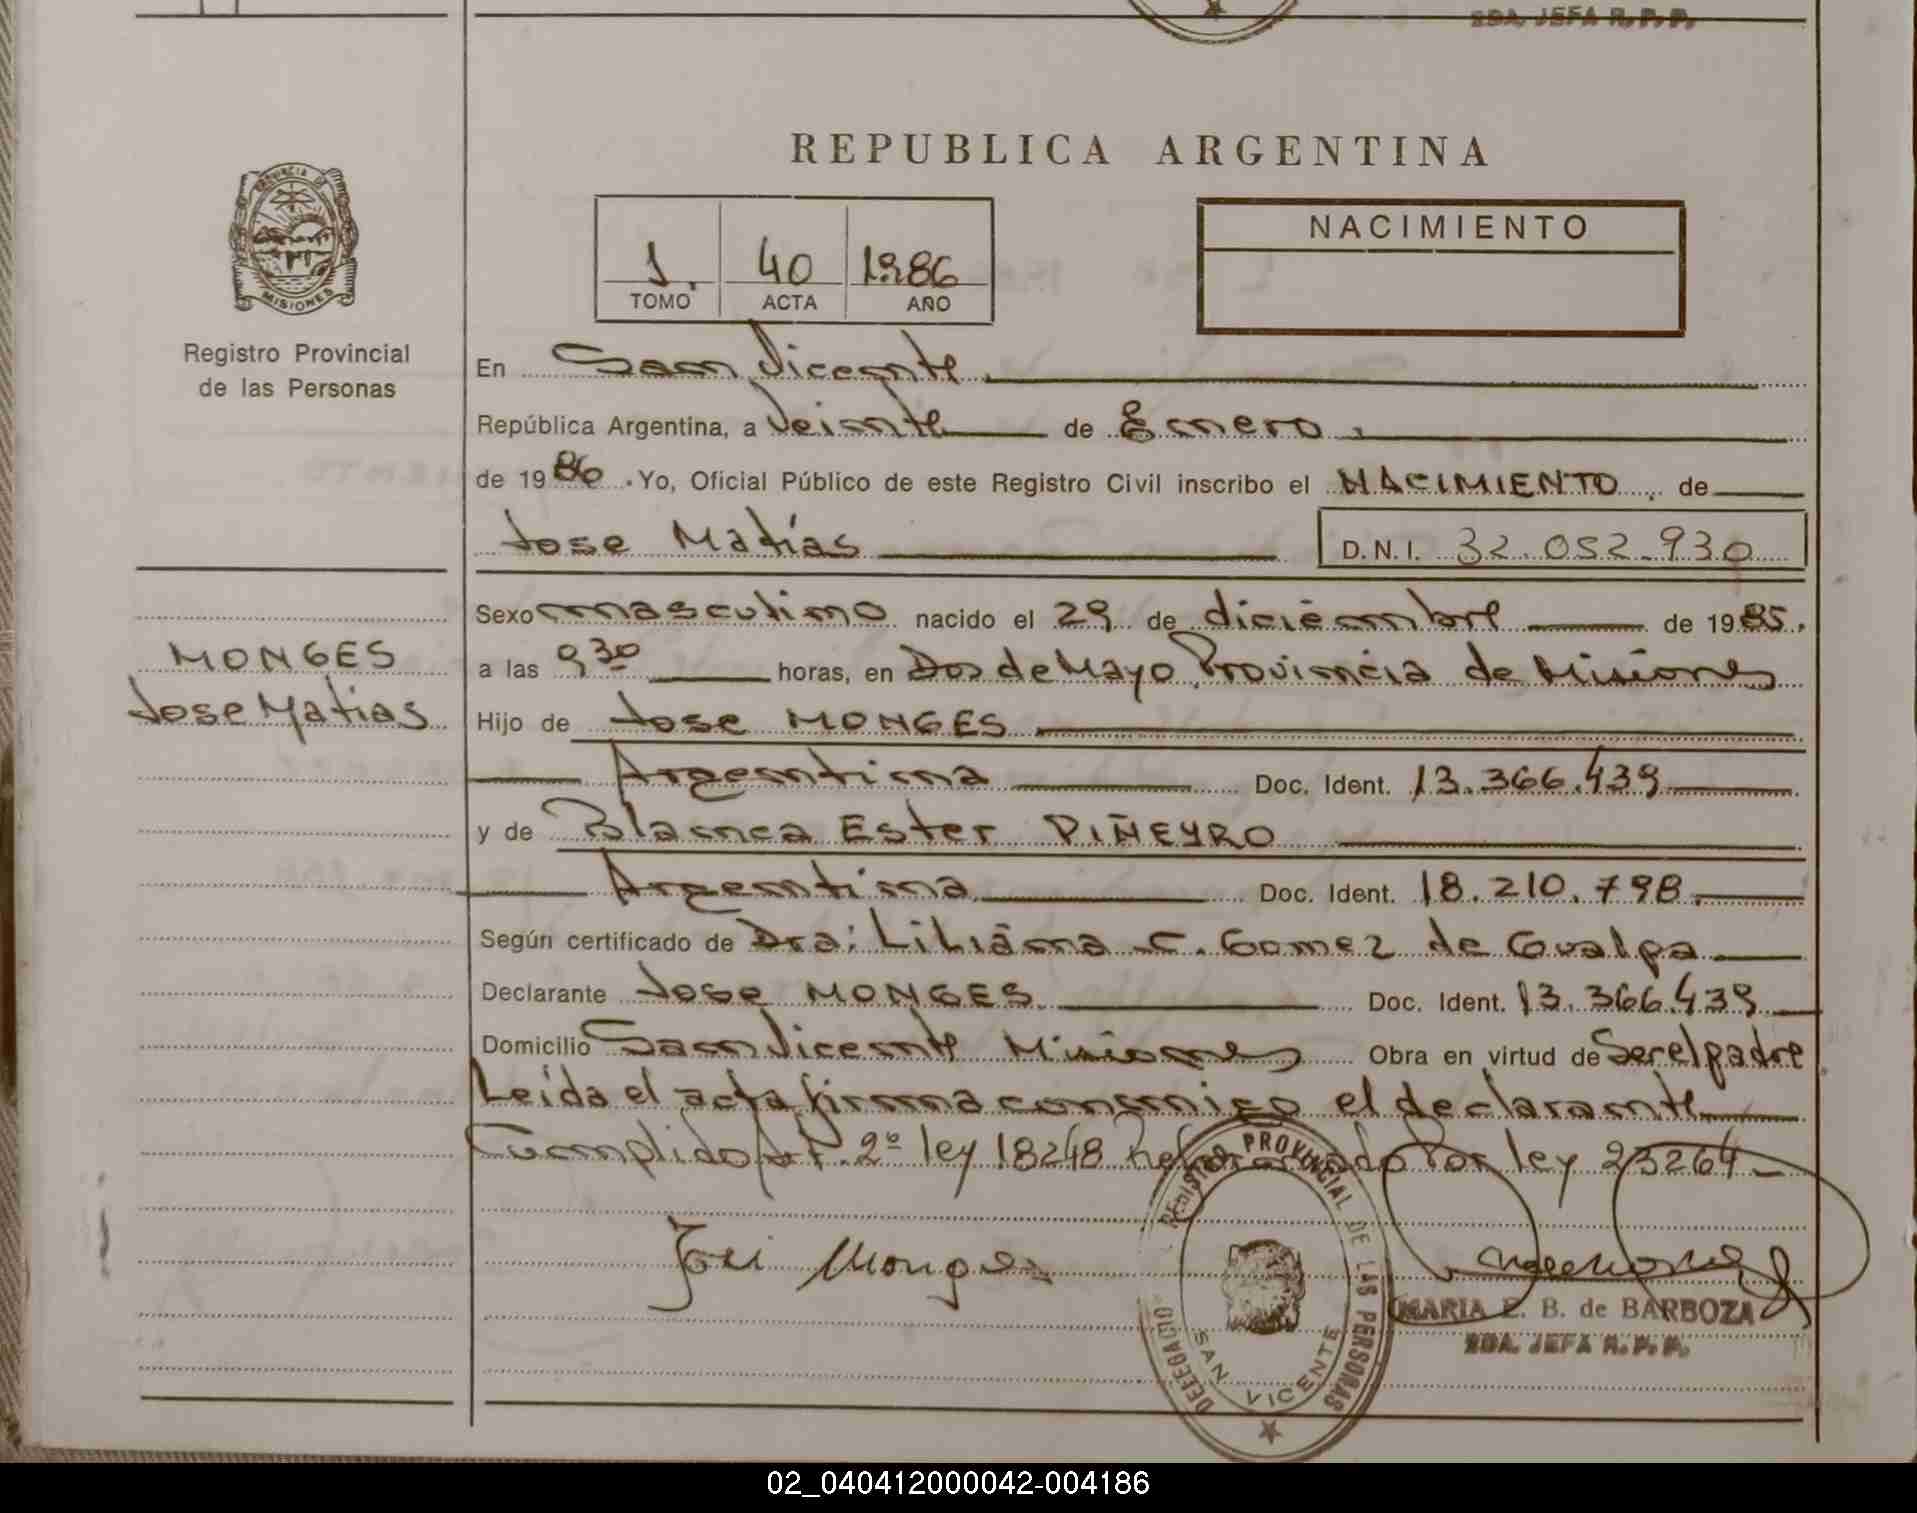 2DA. JEFA R. P. P.
REPUBLICA ARGENTINA
PROVINCIA DE
MISIONES
Registro Provincial
de las Personas
1. 40 1986
TOMO ACTA AÑO
NACIMIENTO
En San Vicente
República Argentina, a Veinte de Enero
de 1986. Yo, Oficial Público de este Registro Civil inscribo el NACIMIENTO de
Jose Matías D.N.I. 32.052.930
Sexo masculino nacido el 29 de diciembre de 1985.
MONGES
Jose Matias
a las 9 30 horas, en Dos de Mayo, Provincia de Misiones
Hijo de Jose MONGES
Argentina Doc. Ident. 13.366.439
y de Blanca Ester PIÑEYRO
Argentina Doc. Ident. 18.210.798.
Según certificado de Dra: Liliana C. Gomez de Gualpa
Declarante Jose MONGES Doc. Ident. 13.366.439
Domicilio San Vicente Misiones Obra en virtud de Ser el padre
Leída el acta firma conmigo el declarante
Cumplido Art. 2º ley 18248 Reformado Por ley 23264
José Monges
REGISTRO PROVINCIAL DE LAS PERSONAS
DELEGACION
SAN VICENTE
MARIA E. B. de BARBOZA
2DA. JEFA R. P. P.
02_040412000042-004186